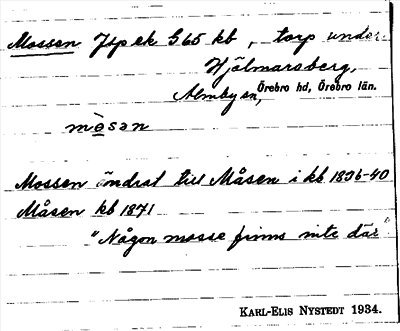 Mossen Jsp ek G65 kb, torp under
Hjälmarsberg,
Almby sn, Örebro hd, Örebro län.
mòsan
Mossen ändrat till Måsen i kb 1836-40
Måsen kb 1871
"Någon mosse finns inte där"
KARL-ELIS NYSTEDT 1934.